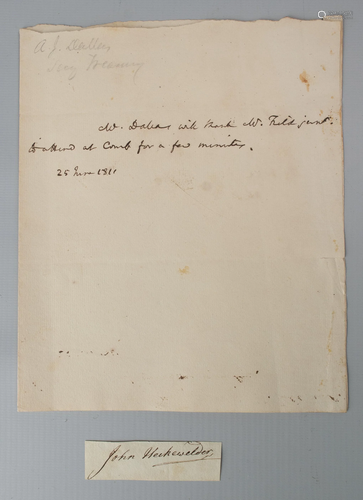 A. J. Dallas
Treasury
Mr. Dallas will thank Mr. Field junr.
to attend at Court for a few minutes.
25 June 1811
John Heckewelder